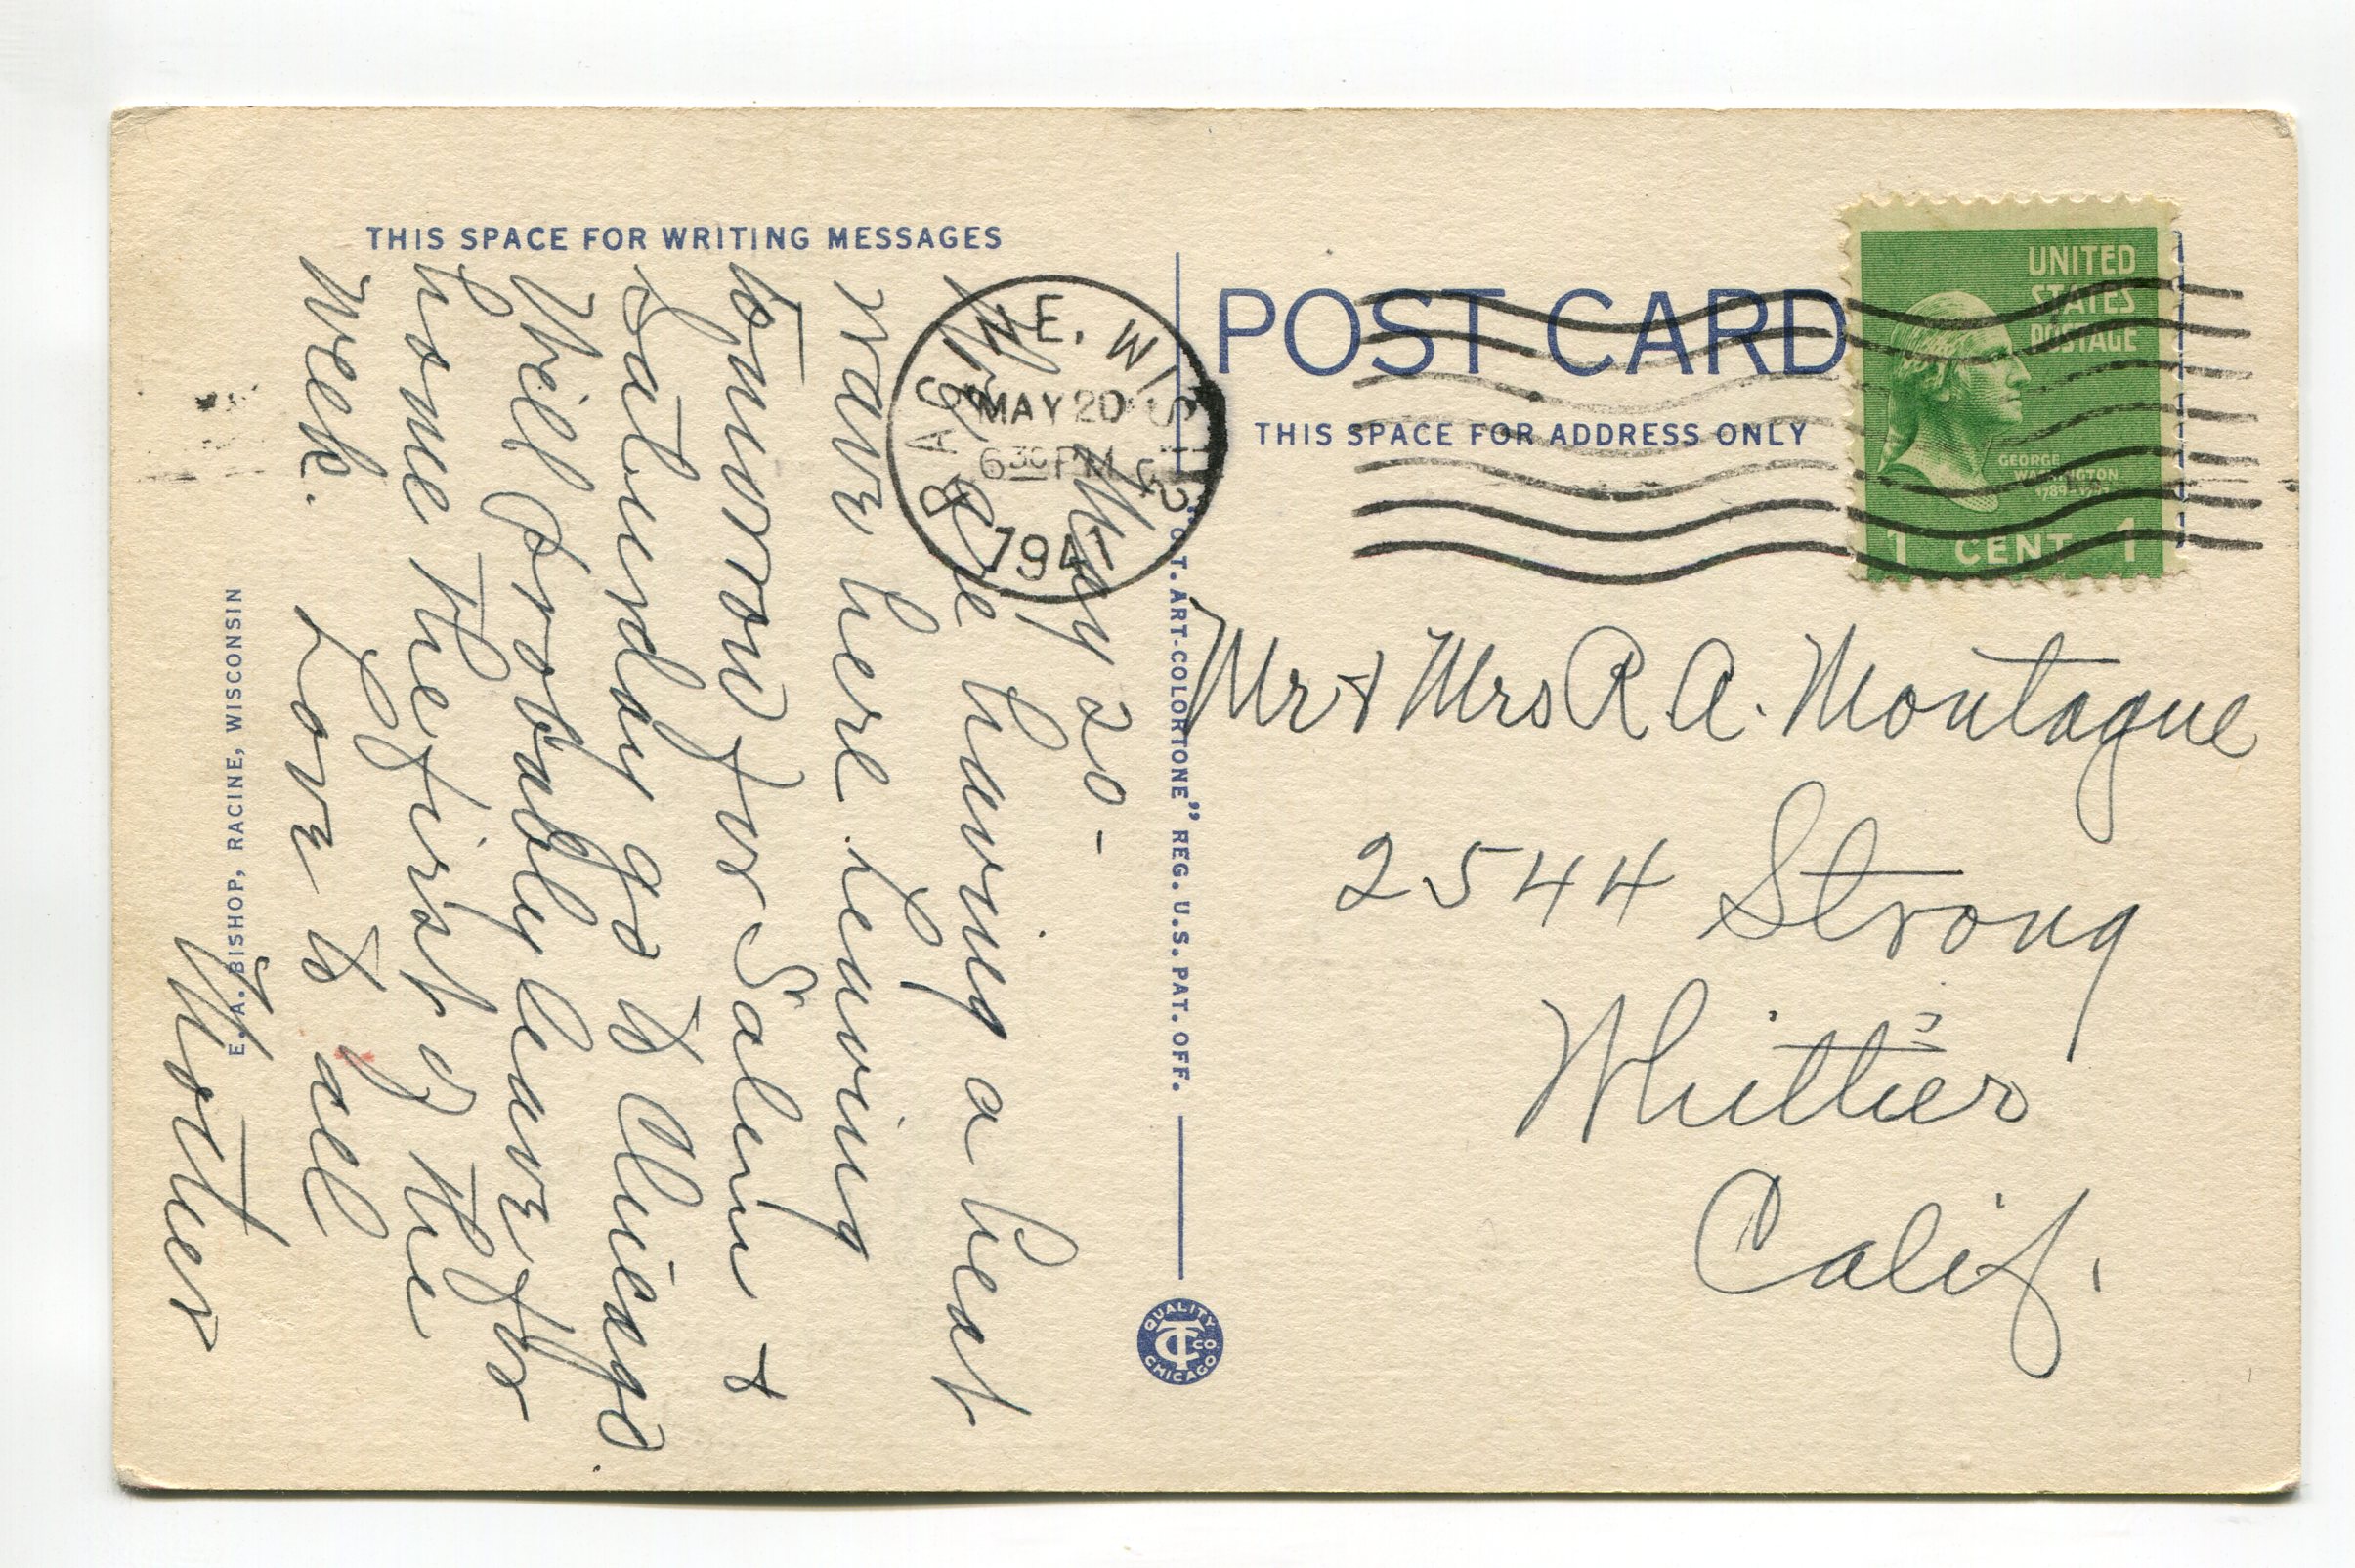 THIS SPACE FOR WRITING MESSAGES
May 20-
We are having a heat
wave here. Leaving
tomorrow for Salem &
Saturday go to Chicago.
Will probably leave for
home the first of the
week.
Love to all
Mother
E. A. BISHOP, RACINE, WISCONSIN
RACINE, WIS.
MAY 20
6 30 PM
1941
"C. T. ART-COLORTONE" REG. U.S. PAT. OFF.
QUALITY
CT CO
CHICAGO
POST CARD
THIS SPACE FOR ADDRESS ONLY
UNITED
STATES
POSTAGE
GEORGE
WASHINGTON
1 CENT 1
Mr & Mrs R. A. Montague
2544 Strong
Whittier
Calif.